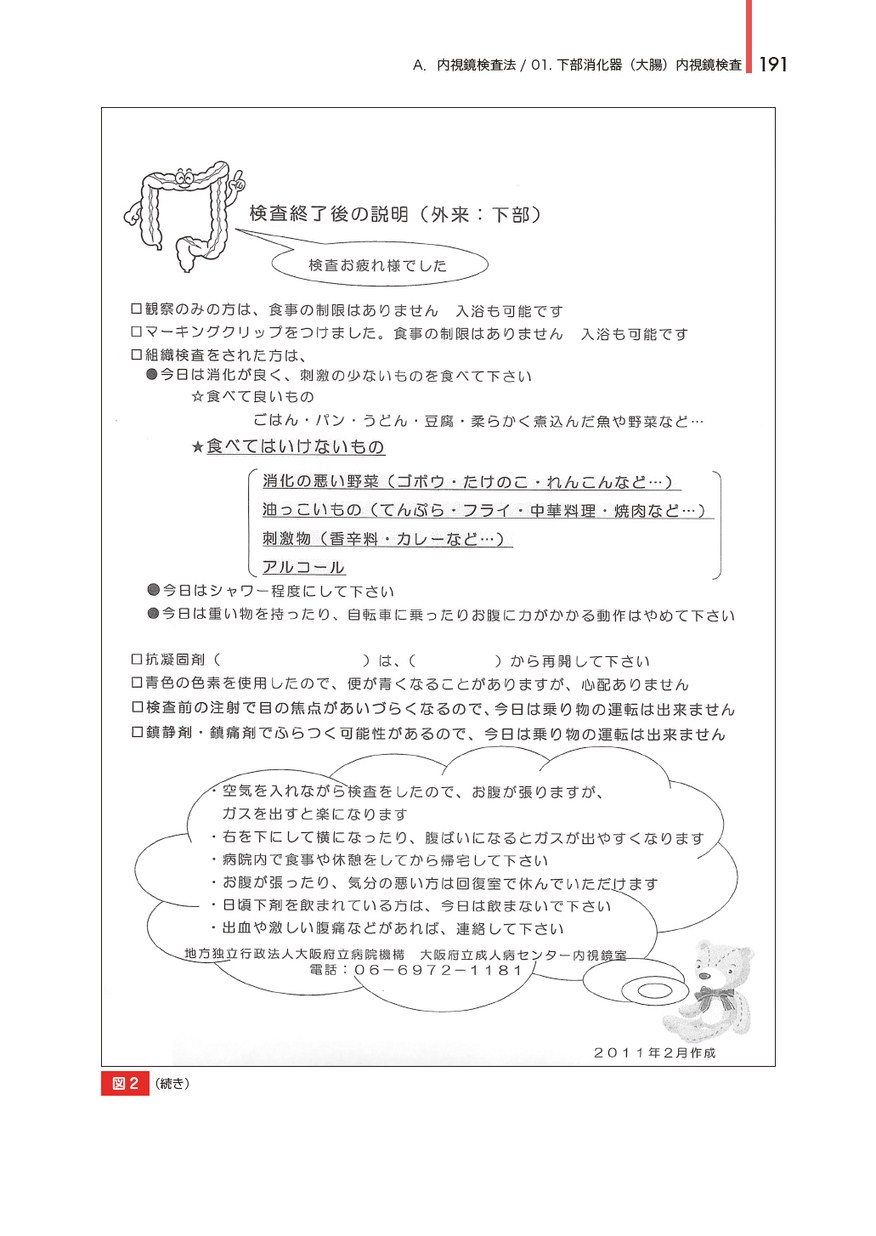 A．内視鏡検査法 / 01. 下部消化器（大腸）内視鏡検査 191
検査終了後の説明（外来：下部）
検査お疲れ様でした
□観察のみの方は、食事の制限はありません　入浴も可能です
□マーキングクリップをつけました。食事の制限はありません　入浴も可能です
□組織検査をされた方は、
●今日は消化が良く、刺激の少ないものを食べて下さい
☆食べて良いもの
ごはん・パン・うどん・豆腐・柔らかく煮込んだ魚や野菜など…
★食べてはいけないもの
消化の悪い野菜（ゴボウ・たけのこ・れんこんなど…）
油っこいもの（てんぷら・フライ・中華料理・焼肉など…）
刺激物（香辛料・カレーなど…）
アルコール
●今日はシャワー程度にして下さい
●今日は重い物を持ったり、自転車に乗ったりお腹に力がかかる動作はやめて下さい
□抗凝固剤（　　　　　　　　　）は、（　　　　　）から再開して下さい
□青色の色素を使用したので、便が青くなることがありますが、心配ありません
□検査前の注射で目の焦点があいづらくなるので、今日は乗り物の運転は出来ません
□鎮静剤・鎮痛剤でふらつく可能性があるので、今日は乗り物の運転は出来ません
・空気を入れながら検査をしたので、お腹が張りますが、
ガスを出すと楽になります
・右を下にして横になったり、腹ばいになるとガスが出やすくなります
・病院内で食事や休憩をしてから帰宅して下さい
・お腹が張ったり、気分の悪い方は回復室で休んでいただけます
・日頃下剤を飲まれている方は、今日は飲まないで下さい
・出血や激しい腹痛などがあれば、連絡して下さい
地方独立行政法人大阪府立病院機構　大阪府立成人病センター内視鏡室
電話：０６－６９７２－１１８１
２０１１年２月作成
図 2 （続き）